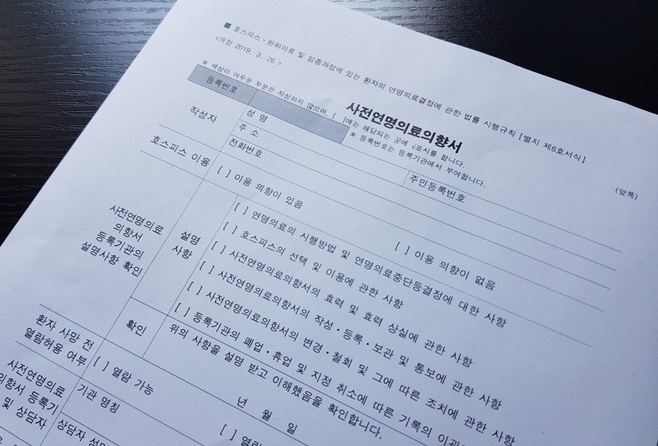 ■ 호스피스ㆍ완화의료 및 임종과정에 있는 환자의 연명의료결정에 관한 법률 시행규칙 [별지 제6호서식]
<개정 2019. 3. 26.>
(앞쪽)
사전연명의료의향서
※ 색상이 어두운 부분은 작성하지 않으며, [ ]에는 해당되는 곳에 √표시를 합니다.
등록번호
※ 등록번호는 등록기관에서 부여합니다.
작성자
성 명
주민등록번호
주 소
전화번호
호스피스 이용
[ ] 이용 의향이 있음
[ ] 이용 의향이 없음
사전연명의료
의향서
등록기관의
설명사항 확인
설명
사항
[ ] 연명의료의 시행방법 및 연명의료중단등결정에 대한 사항
[ ] 호스피스의 선택 및 이용에 관한 사항
[ ] 사전연명의료의향서의 효력 및 효력 상실에 관한 사항
[ ] 사전연명의료의향서의 작성ㆍ등록ㆍ보관 및 통보에 관한 사항
[ ] 사전연명의료의향서의 변경ㆍ철회 및 그에 따른 조치에 관한 사항
[ ] 등록기관의 폐업ㆍ휴업 및 지정 취소에 따른 기록의 이관에
확인
위의 사항을 설명 받고 이해했음을 확인합니다.
년 월 일
환자 사망 전
열람허용 여부
[ ] 열람 가능
[ ] 열람
사전연명의료
의향서 등록기
및 상담자
기관 명칭
상담자 성명